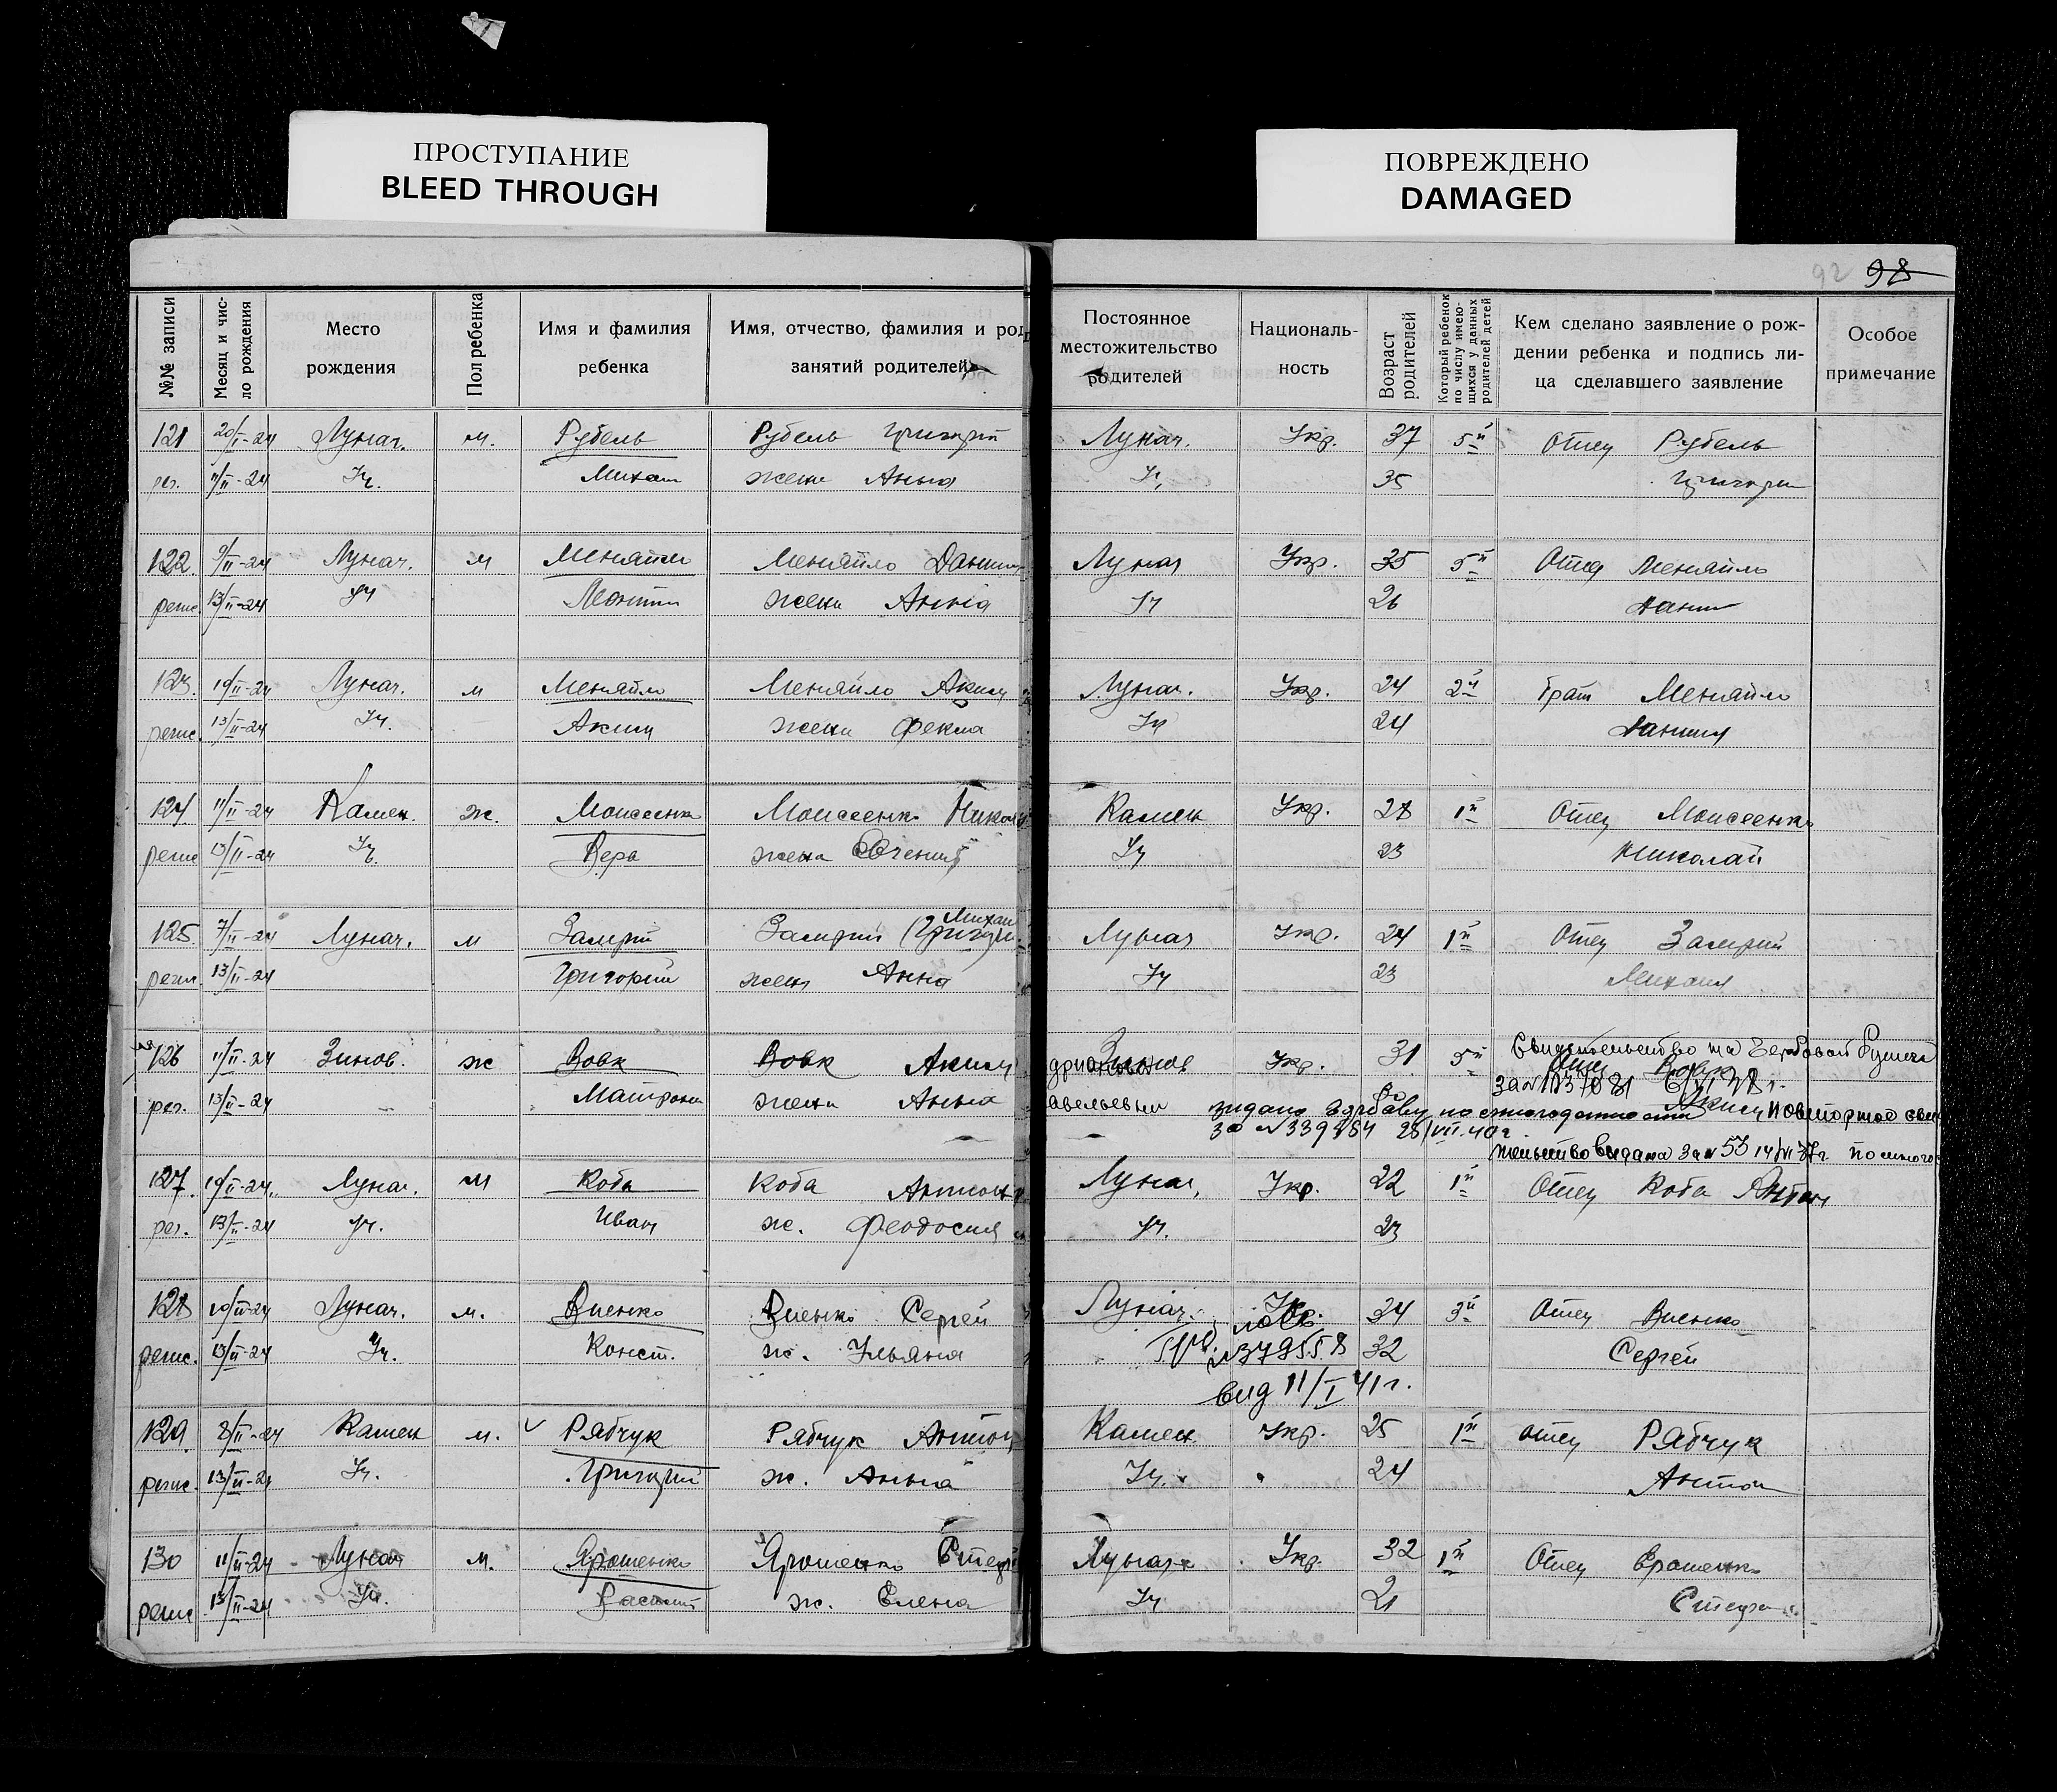 ПРОСТУПАНИЕ
BLEED THROUGH
ПОВРЕЖДЕНО
DAMAGED
92 98
№№ записи
Месяц и чис-
ло рождения
Место
рождения
Пол ребенка
Имя и фамилия
ребенка
Имя, отчество, фамилия и род
занятий родителей
Постоянное
местожительство
родителей
Националь-
ность
Возраст
родителей
Который ребенок
по числу имею-
щихся у данных
родителей детей
Кем сделано заявление о рож-
дении ребенка и подпись ли-
ца сделавшего заявление
Особое
примечание
121 20/I-24 Лунач. м. Рубель Рубель Григорий Лунач. Укр. 37 5й Отец Рубель
рег. 11/II-24 Уч. Михаил жена Анна Уч. 35 Григорий
122 9/II-24 Лунач. м Меняйло Меняйло Даниил Лунач Укр. 35 5й Отец Меняйло
регис. 13/II-24 Уч жена Анна Уч 26 Данил
123. 10/II-24 Лунач. м Меняйло Меняйло Аким Лунач. Укр. 24 2й Брат Меняйло
регис. 13/II-24 Уч. Аким жена Фекла Уч 24 Даниил
124 11/II-24 Камен. ж. Моисеенко Моисеенко Никол Камен Укр. 28 1й Отец Моисеенко
регис 13/II-24 Уч. Вера жена Евгения Уч 23 Николай
Михаи
125 7/II-24 Лунач. м Замрий Замрий (Григори Лунач Укр. 24 1й Отец Замрий
регис. 13/II-24 Григорий жена Анна Уч 23 Михаил
126 11/II-24 Зинов. ж Вовк Вовк Аким Зинов Укр. 31 5й Свидетельство на Гербовой бумаге
Отец Вовк
рег. 13/II-24 Матрона жена Анна авельевны Аким повторное сви
за № 339384 28/VII.40г.
тельство выдана за № 53 14/VI 37г по много
127. 10/II-24. Лунач. м Коба Коба Антон Лунач, Укр. 22 1й Отец Коба Антон
рег. 13/II-24 Уч. Иван ж. Феодосия Уч. 23
128 10/II-24 Лунач. м. Виенко Виенко Сергей Лунач. Укр. 34 3й Отец Виенко
регис. 13/II-24 Уч. Конст. ж. Ульяна № 379558 32 Сергей
вид 11/I 41г.
129. 8/II-24 Камен м. Рябчук Рябчук Антон Камен. Укр. 25 1й отец Рябчук
регис 13/II-24 Уч. Григорий ж. Анна Уч. 24 Антон
130 11/II-24 Лунач м. Ярошенко Ярошенко Лунач Укр. 32 1й Отец Ерошенко
регис 13/II-24 Уч. ж. Елена Уч 21